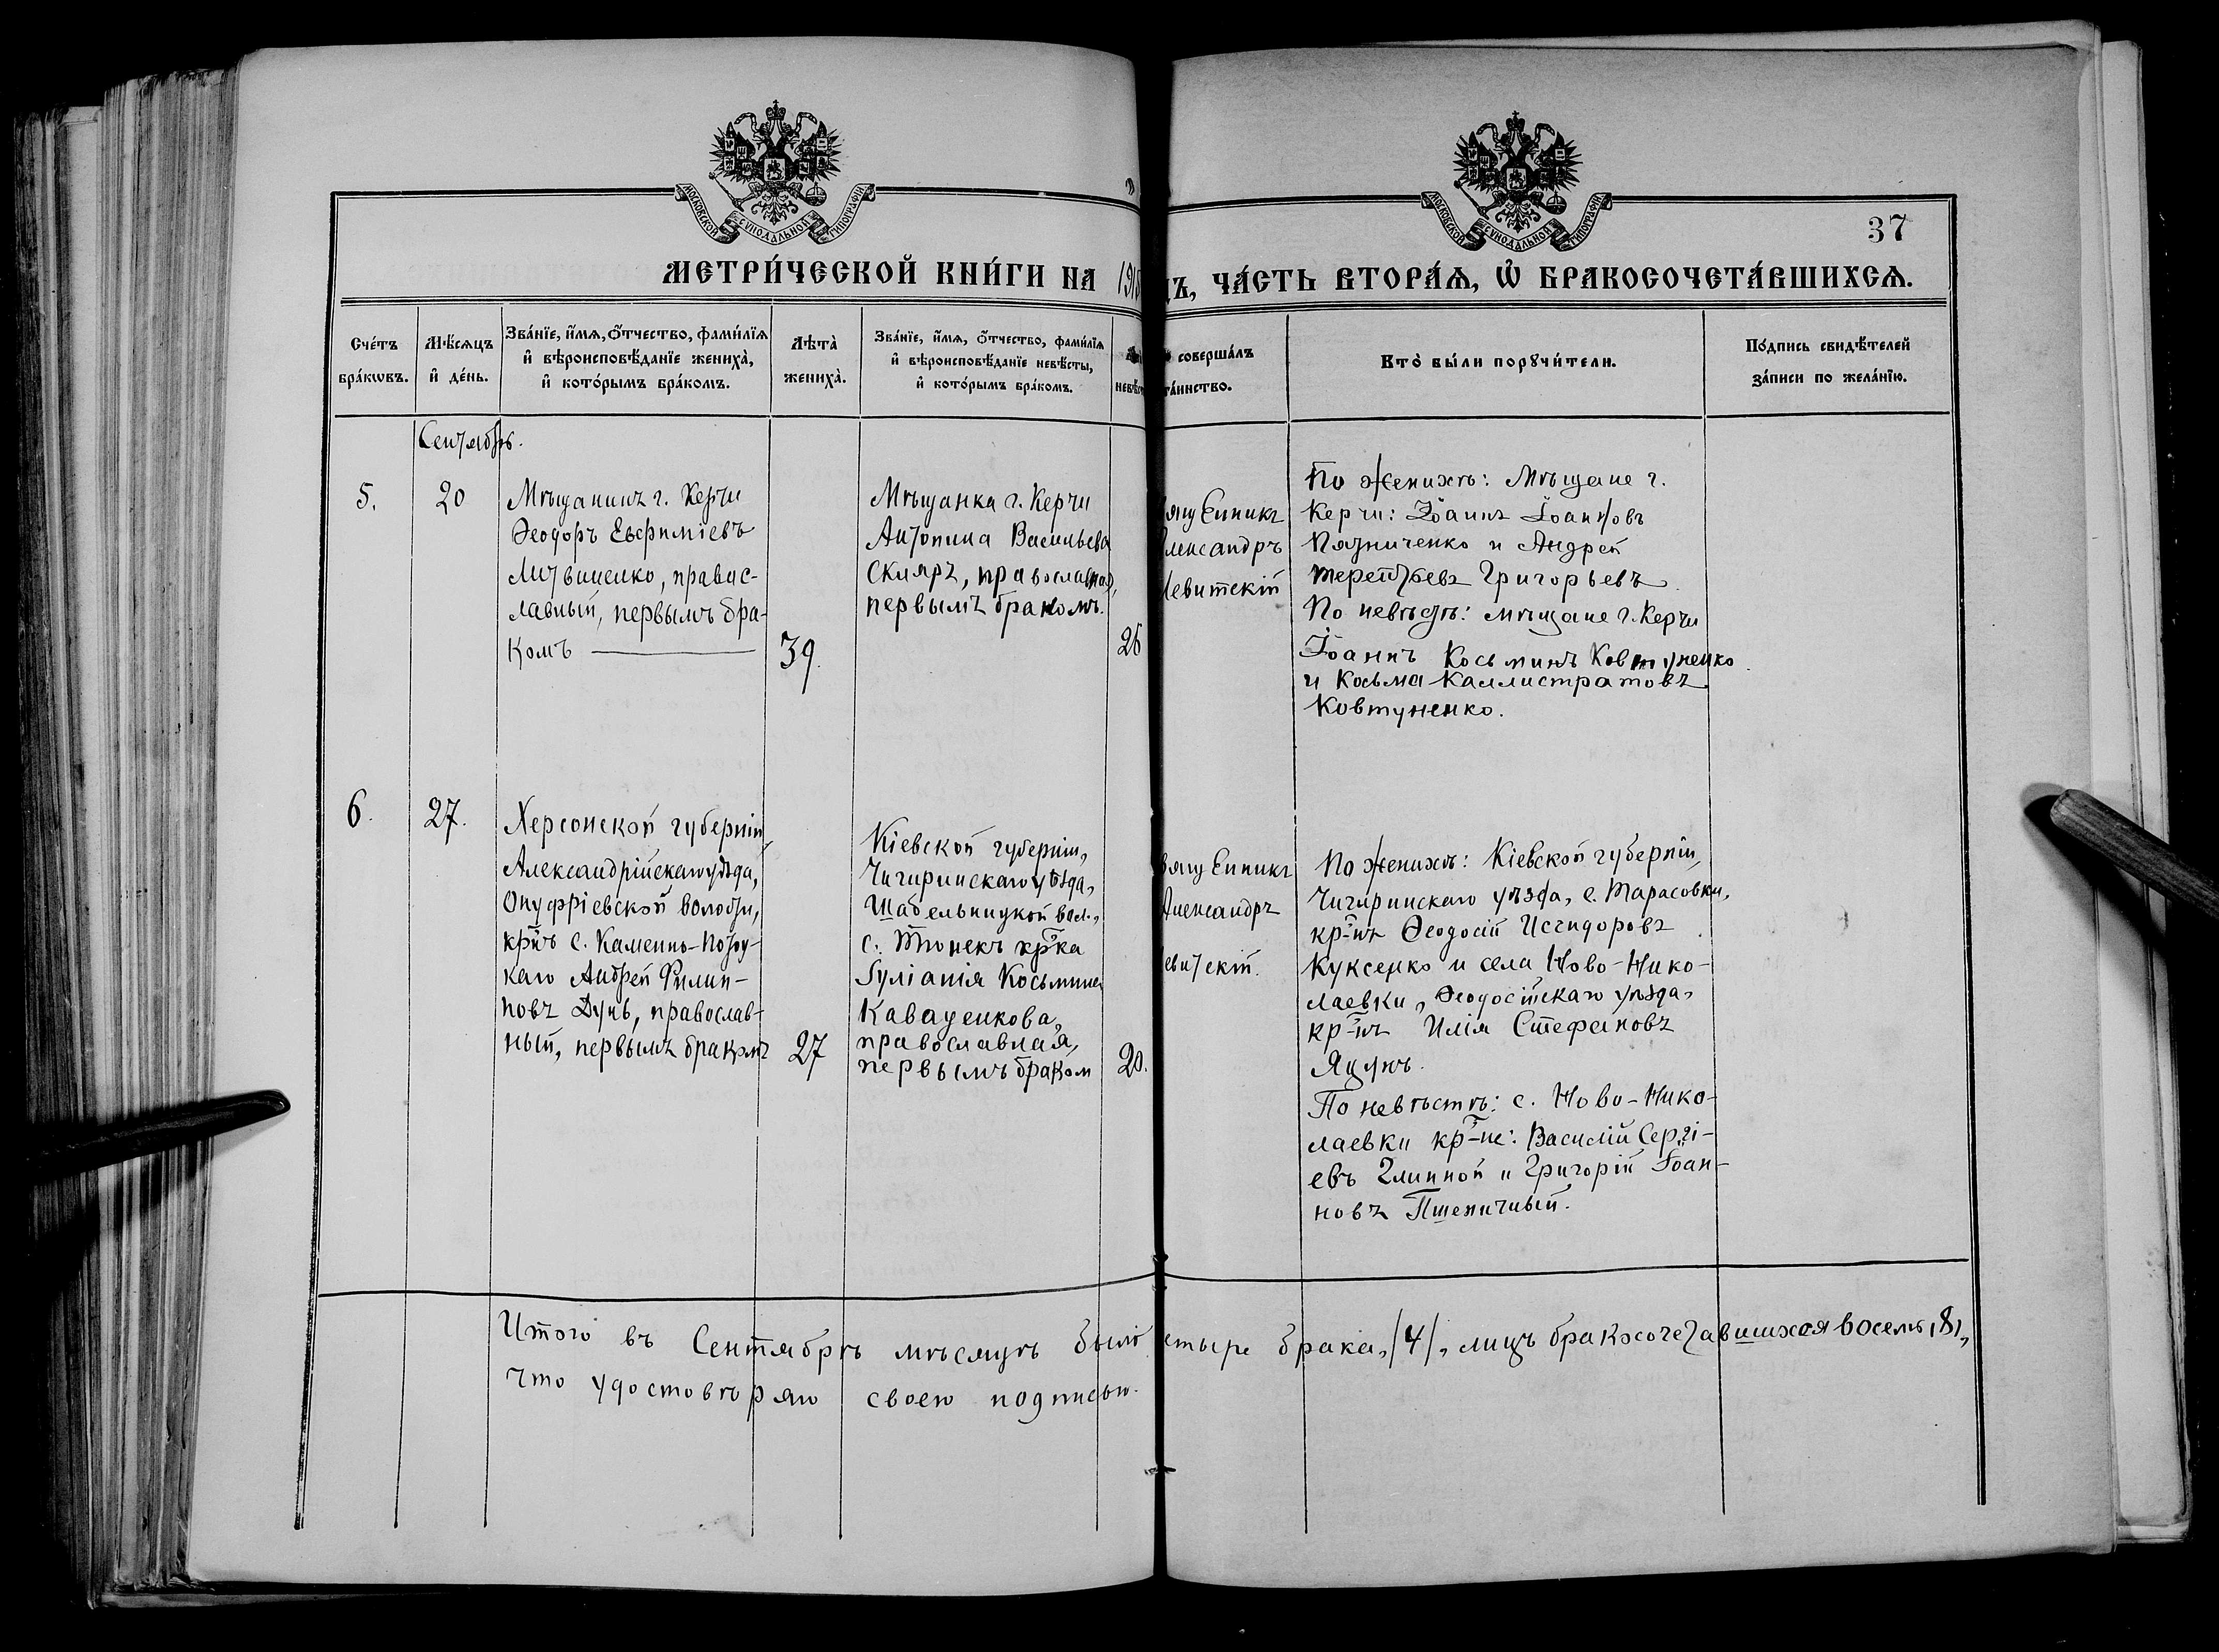 МОСКОВСКОЙ СУНОДАЛЬНОЙ ТИПОГРАФІИ
МОСКОВСКОЙ СУНОДАЛЬНОЙ ТИПОГРАФІИ
37
МЕТРИ́ЧЕСКОЙ КНИ́ГИ НА 1915
ДЪ, ЧА́СТЬ ВТОРА́Ѧ, Ѽ БРАКОСОЧЕТА́ВШИХСѦ.
Сче́тъ
бра́кѡвъ.
Мѣ́сяцъ
и҆ де́нь.
Зва́нїе, и҆́мѧ, ѻ҆́тчество, фами́лїѧ
и҆ вѣроисповѣ́данїе жениха̀,
и҆ кото́рымъ бра́комъ.
Лѣта̀
жениха̀.
Зва́нїе, и҆́мѧ, ѻ҆́тчество, фами́лїѧ
и҆ вѣроисповѣ́данїе невѣ́сты,
и҆ кото́рымъ бра́комъ.
невѣ́с
соверша́лъ
та́инство.
Кто̀ бы́ли порꙋчи́тели.
По́дпись свидѣ́телей
за́писи по жела́нїю.
Сентябрь.
5.
20
Мѣщанинъ г. Керчи
Ѳеодоръ Евфиміевъ
Литвиненко, правос-
лавный, первымъ бра-
комъ
39.
Мѣщанка г. Керчи
Антонина Васильева
Скляръ, православная,
первымъ бракомъ.
26
ященникъ
лександръ
Левитскій
По женихѣ: Мѣщане г.
Керчи: Іоаннъ Іоанновъ
Пазниченко и Андрей
Терентьевъ Григорьевъ.
По невѣстѣ: мѣщане г. Керчи
Іоаннъ Косьминъ Ковтуненко
и Косьма Каллистратовъ
Ковтуненко.
6.
27.
Херсонской губерніи,
Александрійскаго уѣзда,
Онуфріевской волости,
кр-нъ с. Каменно-Пото-
каго Андрей Филип-
повъ Дунь, православ-
ный, первымъ бракомъ
27
Кіевской губерніи,
Чигиринскаго уѣзда,
Шабельницкой вол.,
с. Тинекъ кр-ка
Іуліанія Косьмина
Кавауенкова,
православная,
первымъ браком
20.
вященникъ
Александръ
евитскій.
По женихѣ: Кіевской губерніи,
Чигиринскаго уѣзда, с. Тарасовки,
кр-нъ Ѳеодосій Исидоровъ
Куксенко и села Ново-Нико-
лаевки, Ѳеодосійскаго уѣзда,
кр-нъ Илія Стефановъ
Яцукъ.
По невѣстѣ: с. Ново-Нико-
лаевки кр-не: Василій Сергі-
евъ Глинной и Григорій Іоан-
новъ Пшеничный.
Итого въ Сентябрѣ мѣсяцѣ было етыре брака, /4/, лицъ бракосочетавшихся восемь, /8/,
что удостовѣряю своею подписью.